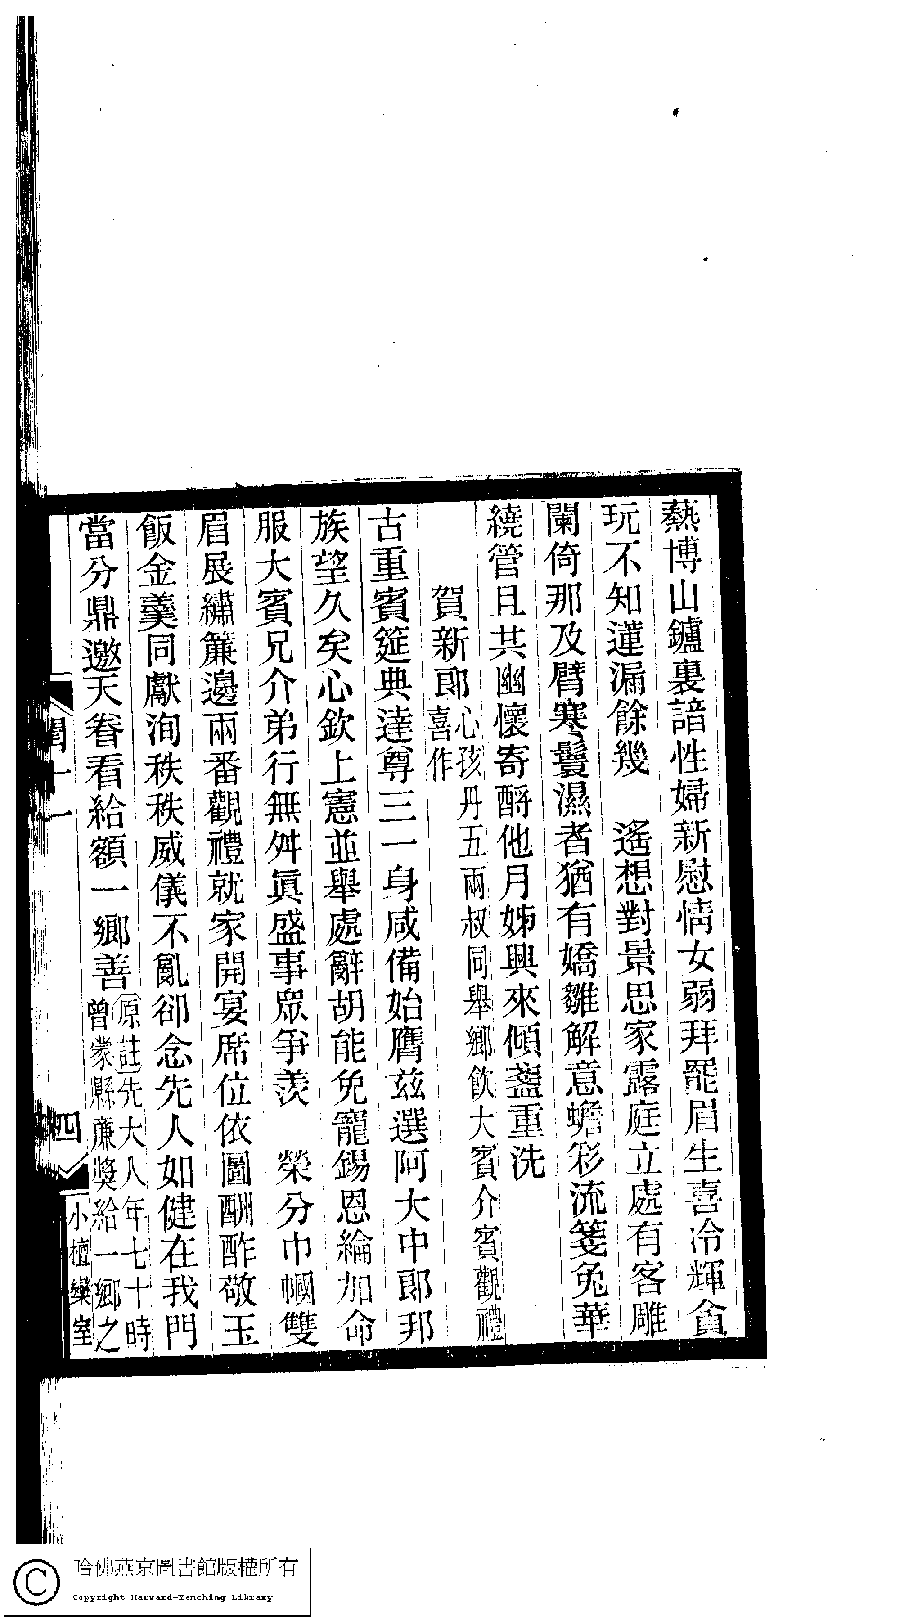 熱博山鑪裏諳性婦新慰情女弱拜罷眉生喜冷輝貪
玩不知蓮漏餘幾　遙想對景思家露庭立處有客雕
闌倚那及臂寒鬟濕者猶有嬌雛解意蟾彩流箋兔華
繞管且共幽懷寄酹他月姊興來傾盞重洗
賀新郎心孩丹五兩叔同舉鄉飲大賓介賓觀禮
喜作
古重賓筵典達尊三一身咸備始膺茲選阿大中郎邦
族望久矣心欽上憲並舉處辭胡能免寵錫恩綸加命
服大賓兄介弟行無舛眞盛事眾爭羨　榮分巾幗雙
眉展繡簾邊兩番觀禮就家開宴席位依圖酬酢敬玉
飯金羹同獻洵秩秩威儀不亂卻念先人如健在我門
當分鼎邀天眷看給額一鄉善原註先大人年七十時
曾蒙縣廉獎給一鄉之
閨十一
四
小檀欒室
哈佛燕京圖書館版權所有
Copyright Harvard-Yenching Library